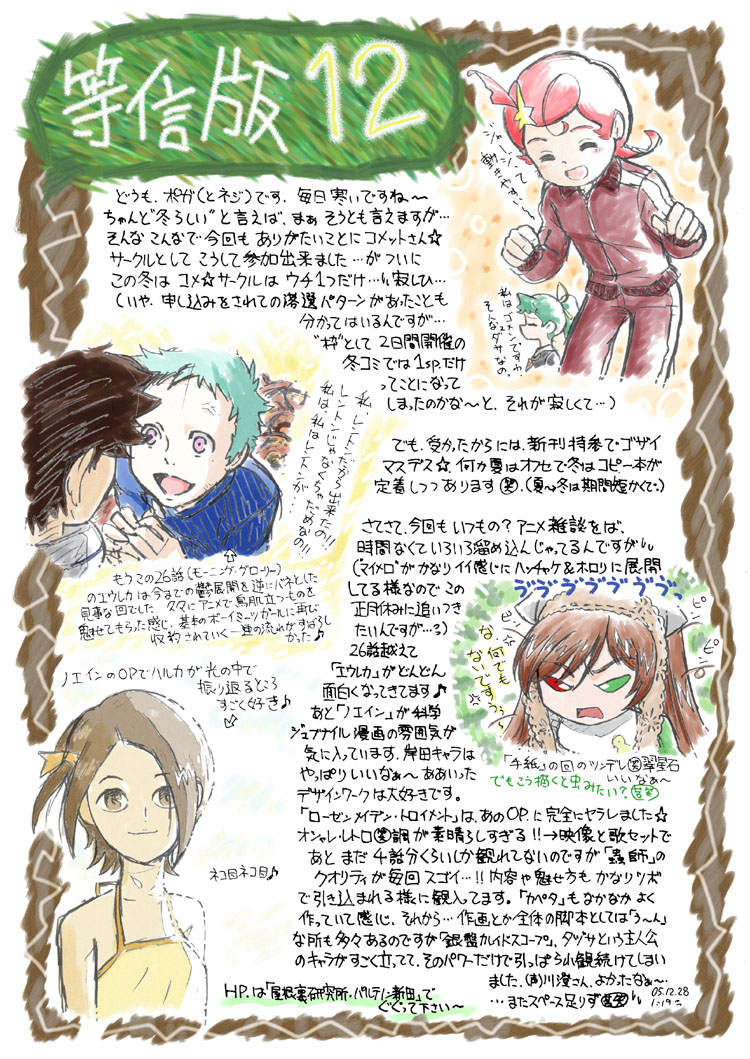 等信版 12
ジャージって
動きやすい〜
私はゴメンですヮ、
そんなダサなの
どうも、ポガ(とネジ)です、毎日寒いですね〜
ちゃんと"冬らしい"と言えば、まぁそうとも言えますが…
そんなこんなで今回もありがたいことにコメットさん☆
サークルとしてこうして参加出来ました…がついに
この冬はコメ☆サークルはウチ1つだけ…寂しひ…
(いや、申し込みをされての落選パターンがあったことも
分かってはいるんですが…
"枠"として2日間開催の
冬コミでは1sp.だけ
ってことになって
しまったのかな〜と、それが寂しくて…)
私、レントンだから出来たの!!
レントンじゃなくちゃだめなの!!
私は、私はレントンが…
もうこの26話(モーニング・グローリー)
のエウレカは今までの鬱展開を逆にバネとした
見事な回でした、タマにアニメで鳥肌立つものを
魅せてもらった感じ、基本のボーイミーツガールに再び
収約されていく一連の流れがすばらし
かった♪
でも、受かったからには、新刊持参でゴザイ
マスデス☆何か夏はオフセで冬はコピー本が
定着しつつあります(笑)、(夏→冬は期間短かくて。)
さてさて、今回もいつもの?アニメ雑談をば、
時間なくていろいろ溜め込んじゃってるんですが
(マイメロがかなりイイ感じにハチャケ&ホロリに展開
してる様なのでこの
正月休みに追いつき
たいんですが…?)
26話越えて
「エウレカ」がどんどん
面白くなってきてます♪
あと「ノエイン」が科学
ジュブナイル漫画の雰囲気が
気に入っています、岸田キャラは
やっぱりいいなぁ〜ああいった
デザインワークは大好きです。
ヴヴヴヴヴヴヴっ
ピン
ピン
な、何でも
ないですぅぅ〜
「手紙」の回のツンデレ(笑)翠星石
いいなぁ〜
でもこう描くと虫みたい?(苦笑)
ノエインのOPでハルカが光の中で
振り返るところ
すごく好き♪
ネコ目ネコ目♪
「ローゼンメイデン・トロイメント」は、あのOP.に完全にヤラレました☆
オシャレ・レトロ(笑)調が素晴らしすぎる!!→映像と歌セットで
あと、まだ4話分くらいしか観れてないのですが「蟲師」の
クオリティが毎回スゴイ…!!内容や魅せ方もかなりツボ
で引き込まれる様に観入ってます。「カペタ」もなかなかよく
作っていて感じ、それから…作画とか全体の脚本としては「う〜ん」
な所も多々あるのですが「銀盤カレイドスコープ」、タヅサという主人公
のキャラがすごく立ってて、そのパワーだけで引っぱられ観続けてしまい
ました、(声)川澄さん、よかったなぁ〜…
…またスペース足りず(苦笑)
05.12.28
1:19
HP.は「屋根裏研究所・バルティン新田」で
ぐぐって下さい〜